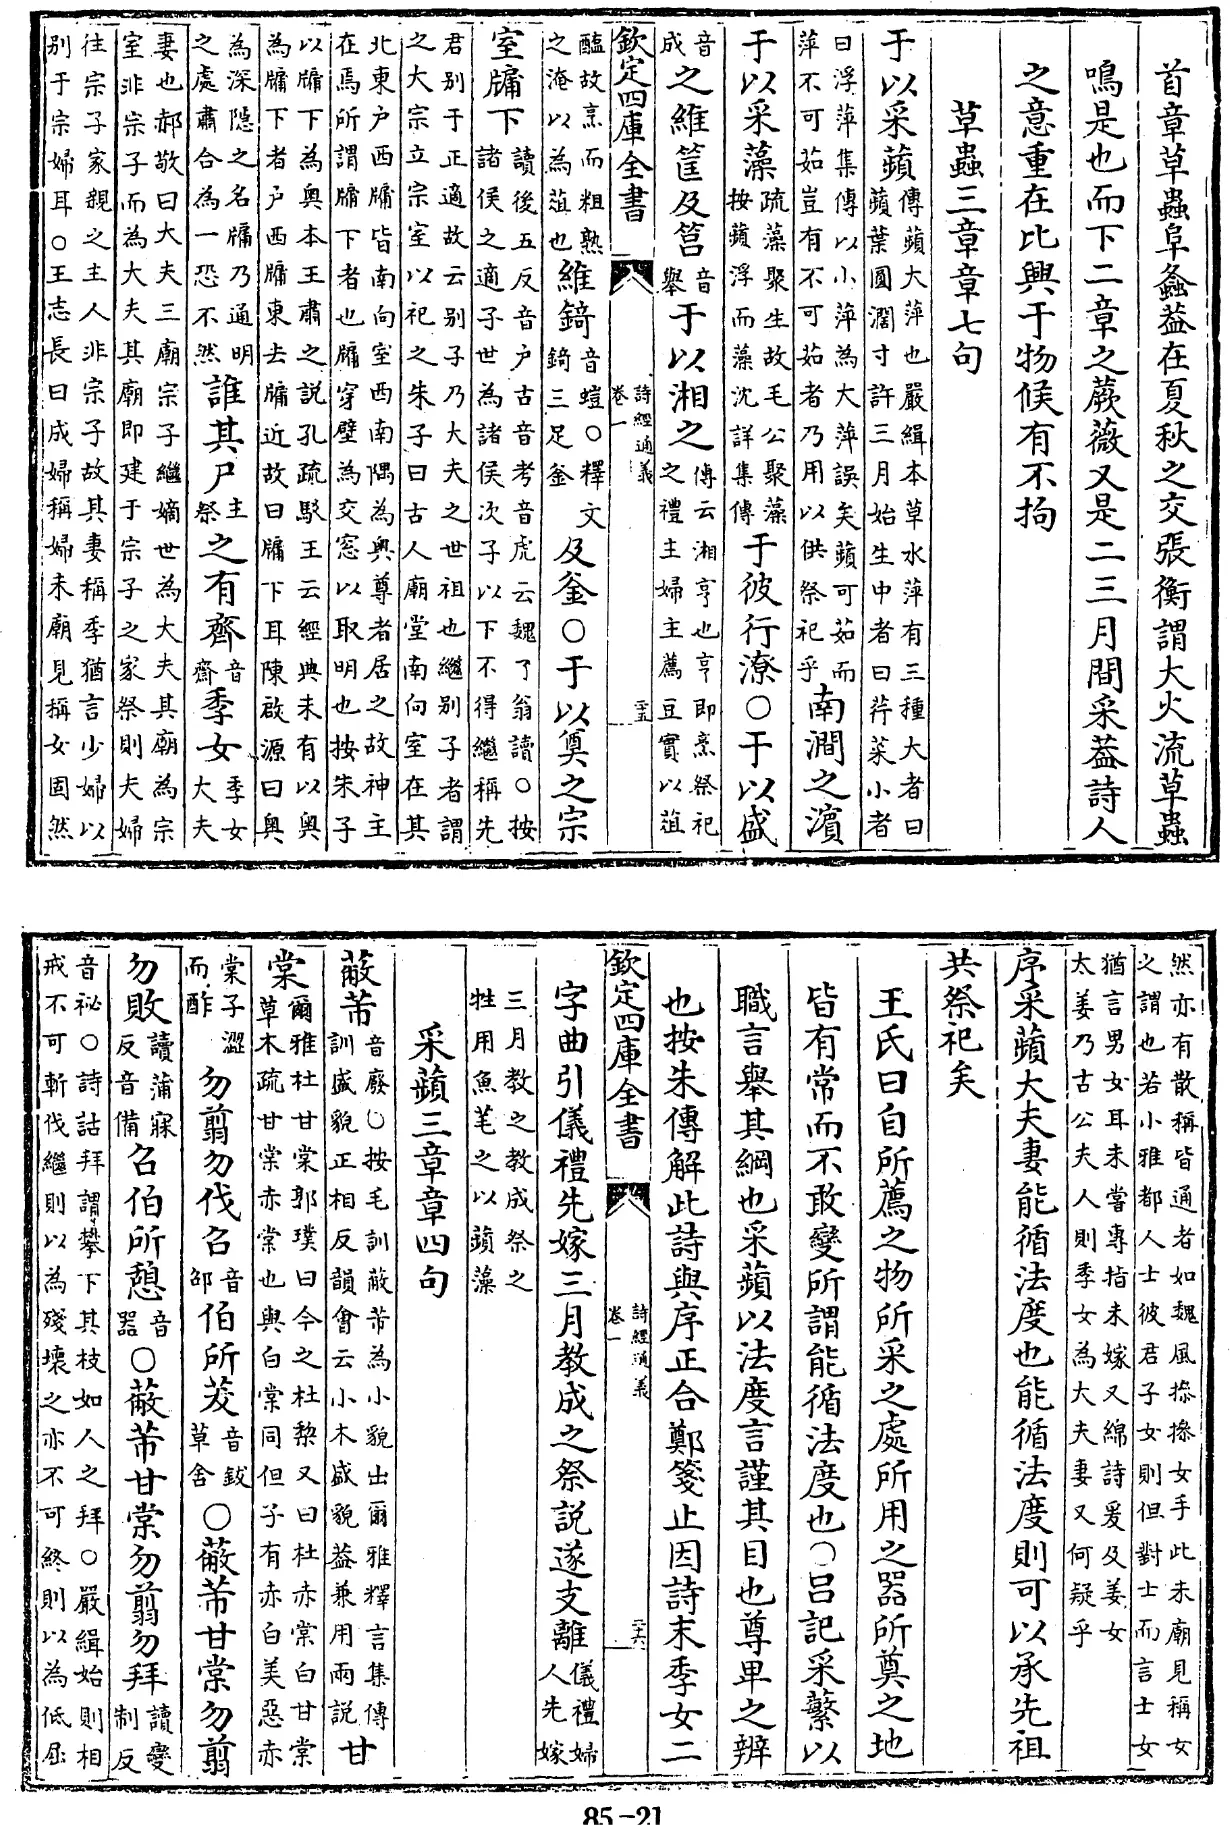 首章草蟲阜螽葢在夏秋之交張衡謂大火流草蟲
鳴是也而下二章之蕨薇又是二三月間采葢詩人
之意重在比興于物候有不拘
草蟲三章章七句
于以采蘋傳蘋大萍也嚴緝本草水萍有三種大者曰蘋葉圓濶寸許三月始生中者曰荇菜小者
曰浮萍集傳以小萍為大萍誤矣蘋可茹而萍不可茹豈有不可茹者乃用以供祭祀乎南澗之濱
于以采藻疏藻聚生故毛公聚藻按蘋浮而藻沈詳集傳于彼行潦○于以盛
音成之維筐及筥音舉于以湘之傳云湘亨也亨即烹祭祀之禮主婦主薦豆實以菹
欽定四庫全書 詩經通義 卷一 二十五
醢故烹而粗熟之淹以為菹也維錡音螘○釋文錡三足釜及釜○于以奠之宗
室牖下讀後五反音户古音考音虎云魏了翁讀○按諸侯之適子世為諸侯次子以下不得繼稱先
君别于正適故云别子乃大夫之世祖也繼别子者謂之大宗立宗室以祀之朱子曰古人廟堂南向室在其
北東户西牖皆南向室西南隅為奥尊者居之故神主在焉所謂牖下者也牖穿壁為交窓以取明也按朱子
以牖下為奥本王肅之説孔疏駁王云經典未有以奥為牖下者户西牖東去牖近故曰牖下耳陳啟源曰奥
為深隱之名牖乃通明之處肅合為一恐不然誰其尸主祭之有齊音齋季女季女大夫
妻也郝敬曰大夫三廟宗子繼嫡世為大夫其廟為宗室非宗子而為大夫其廟即建于宗子之家祭則夫婦
往宗子家親之主人非宗子故其妻稱季猶言少婦以别于宗婦耳○王志長曰成婦稱婦未廟見稱女固然
然亦有散稱皆通者如魏風摻摻女手此未廟見稱女之謂也若小雅都人士彼君子女則但對士而言士女
猶言男女耳未嘗專指未嫁又綿詩爰及姜女太姜乃古公夫人則季女為大夫妻又何疑乎
序采蘋大夫妻能循法度也能循法度則可以承先祖
共祭祀矣
王氏曰自所薦之物所采之處所用之器所奠之地
皆有常而不敢變所謂能循法度也○呂記采蘩以
職言舉其綱也采蘋以法度言謹其目也尊卑之辨
也按朱傳解此詩與序正合鄭箋止因詩末季女二
欽定四庫全書 詩經通義 卷一 二十六
字曲引儀禮先嫁三月教成之祭説遂支離儀禮婦人先嫁
三月教之教成祭之牲用魚芼之以蘋藻
采蘋三章章四句
蔽芾音廢○按毛訓蔽芾為小貌出爾雅釋言集傳訓盛貌正相反韻會云小木盛貌葢兼用兩説甘
棠爾雅杜甘棠郭璞曰今之杜棃又曰杜赤棠白甘棠草木疏甘棠赤棠也與白棠同但子有赤白美惡赤
棠子澀而酢勿翦勿伐召音邵伯所茇音鈸草舍○蔽芾甘棠勿翦
勿敗讀蒲寐反音備召伯所憩音器○蔽芾甘棠勿翦勿拜讀變制反
音祕○詩詁拜謂攀下其枝如人之拜○嚴緝始則相戒不可斬伐繼則以為殘壞之亦不可終則以為低屈
85-21